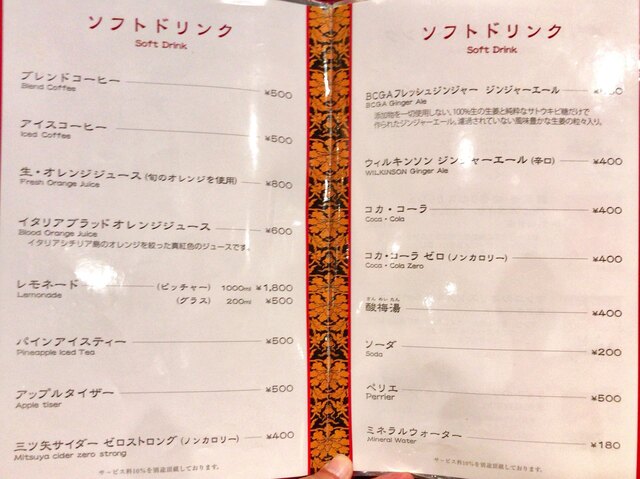 ソフトドリンク
Soft Drink
ブレンドコーヒー ¥500
Blend Coffee
アイスコーヒー ¥500
Iced Coffee
生・オレンジジュース(旬のオレンジを使用) ¥800
Fresh Orange Juice
イタリアブラッドオレンジジュース ¥600
Blood Orange Juice
イタリアシチリア島のオレンジを絞った真紅色のジュースです。
レモネード (ピッチャー) 1000ml ¥1,800
Lemonade (グラス) 200ml ¥500
パインアイスティー ¥500
Pineapple Iced Tea
アップルタイザー ¥500
Apple tiser
三ツ矢サイダー ゼロストロング(ノンカロリー) ¥400
Mitsuya cider zero strong
サービス料10%を別途頂戴しております。
ソフトドリンク
Soft Drink
BCGAフレッシュジンジャー ジンジャーエール
BCGA Ginger Ale
添加物を一切使用しない、100%生の生姜と純粋なサトウキビ糖だけで
作られたジンジャーエール。濾過されていない風味豊かな生姜の粒々入り。
ウィルキンソン ジンジャーエール(辛口) ¥400
WILKINSON Ginger Ale
コカ・コーラ ¥400
Coca・Cola
コカ・コーラ ゼロ(ノンカロリー) ¥400
Coca・Cola Zero
さん めい たん
酸梅湯 ¥400
ソーダ ¥200
Soda
ペリエ ¥500
Perrier
ミネラルウォーター ¥180
Mineral Water
サービス料10%を別途頂戴しております。